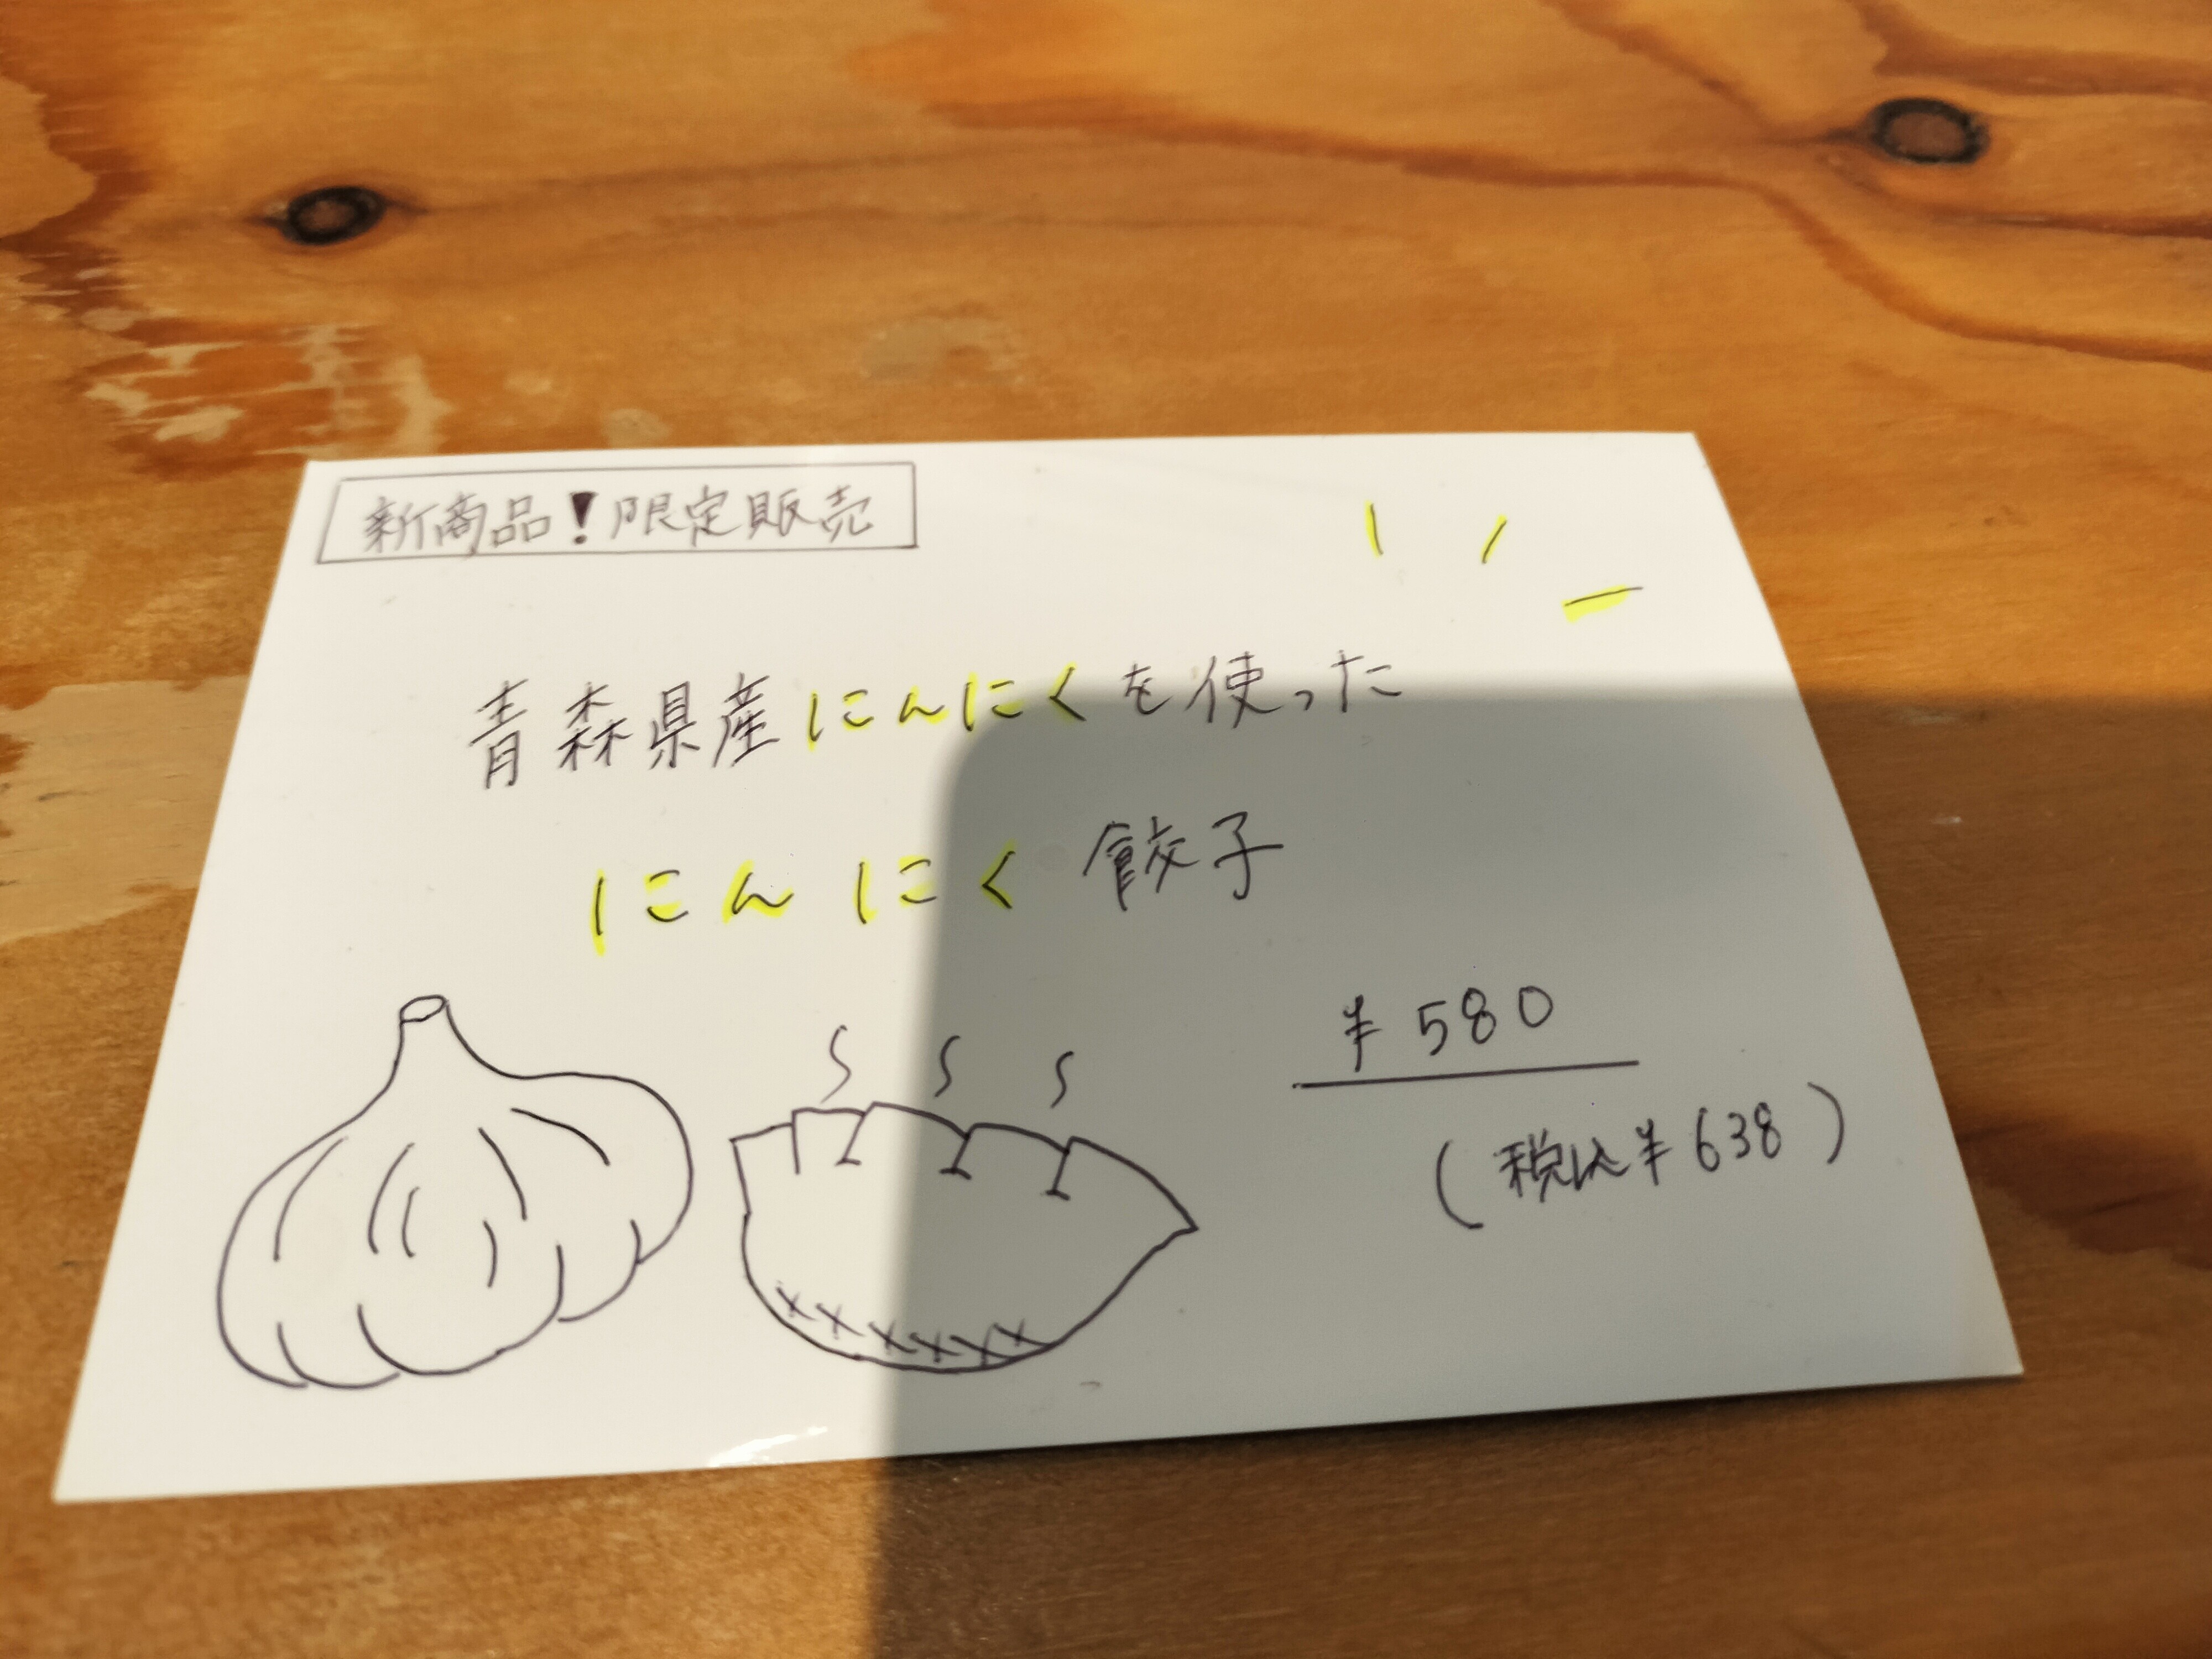 新商品!限定販売
青森県産にんにくを使った
にんにく餃子
¥580
(税込¥638)